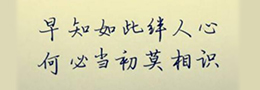 早知如此绊人心
何必当初莫相识